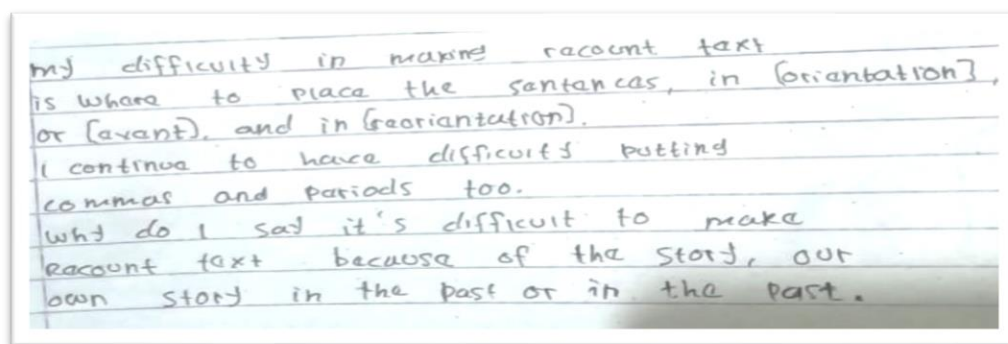 my difficulty in making recount text
is where to place the sentences, in [orientation],
or [event], and in [reorientation].
I continue to have difficulty putting
commas and periods too.
why do I say it's difficult to make
Recount text because of the story, our
own story in the past or in the past.